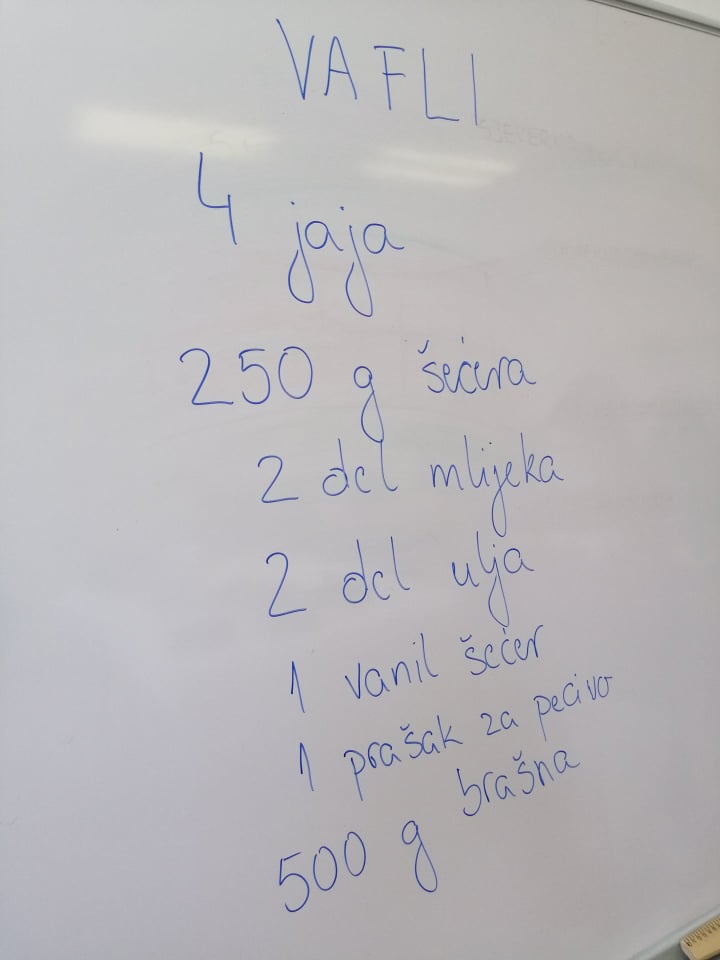 VAFLI
4 jaja
250 g šećera
2 dcl mlijeka
2 dcl ulja
1 vanil šećer
1 prašak za pecivo
500 g brašna